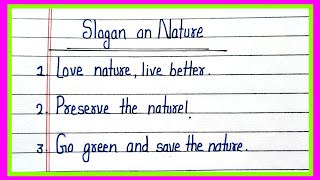 Slogan on Nature
1. Love nature, live better.
2. Preserve the nature!
3. Go green and save the nature.